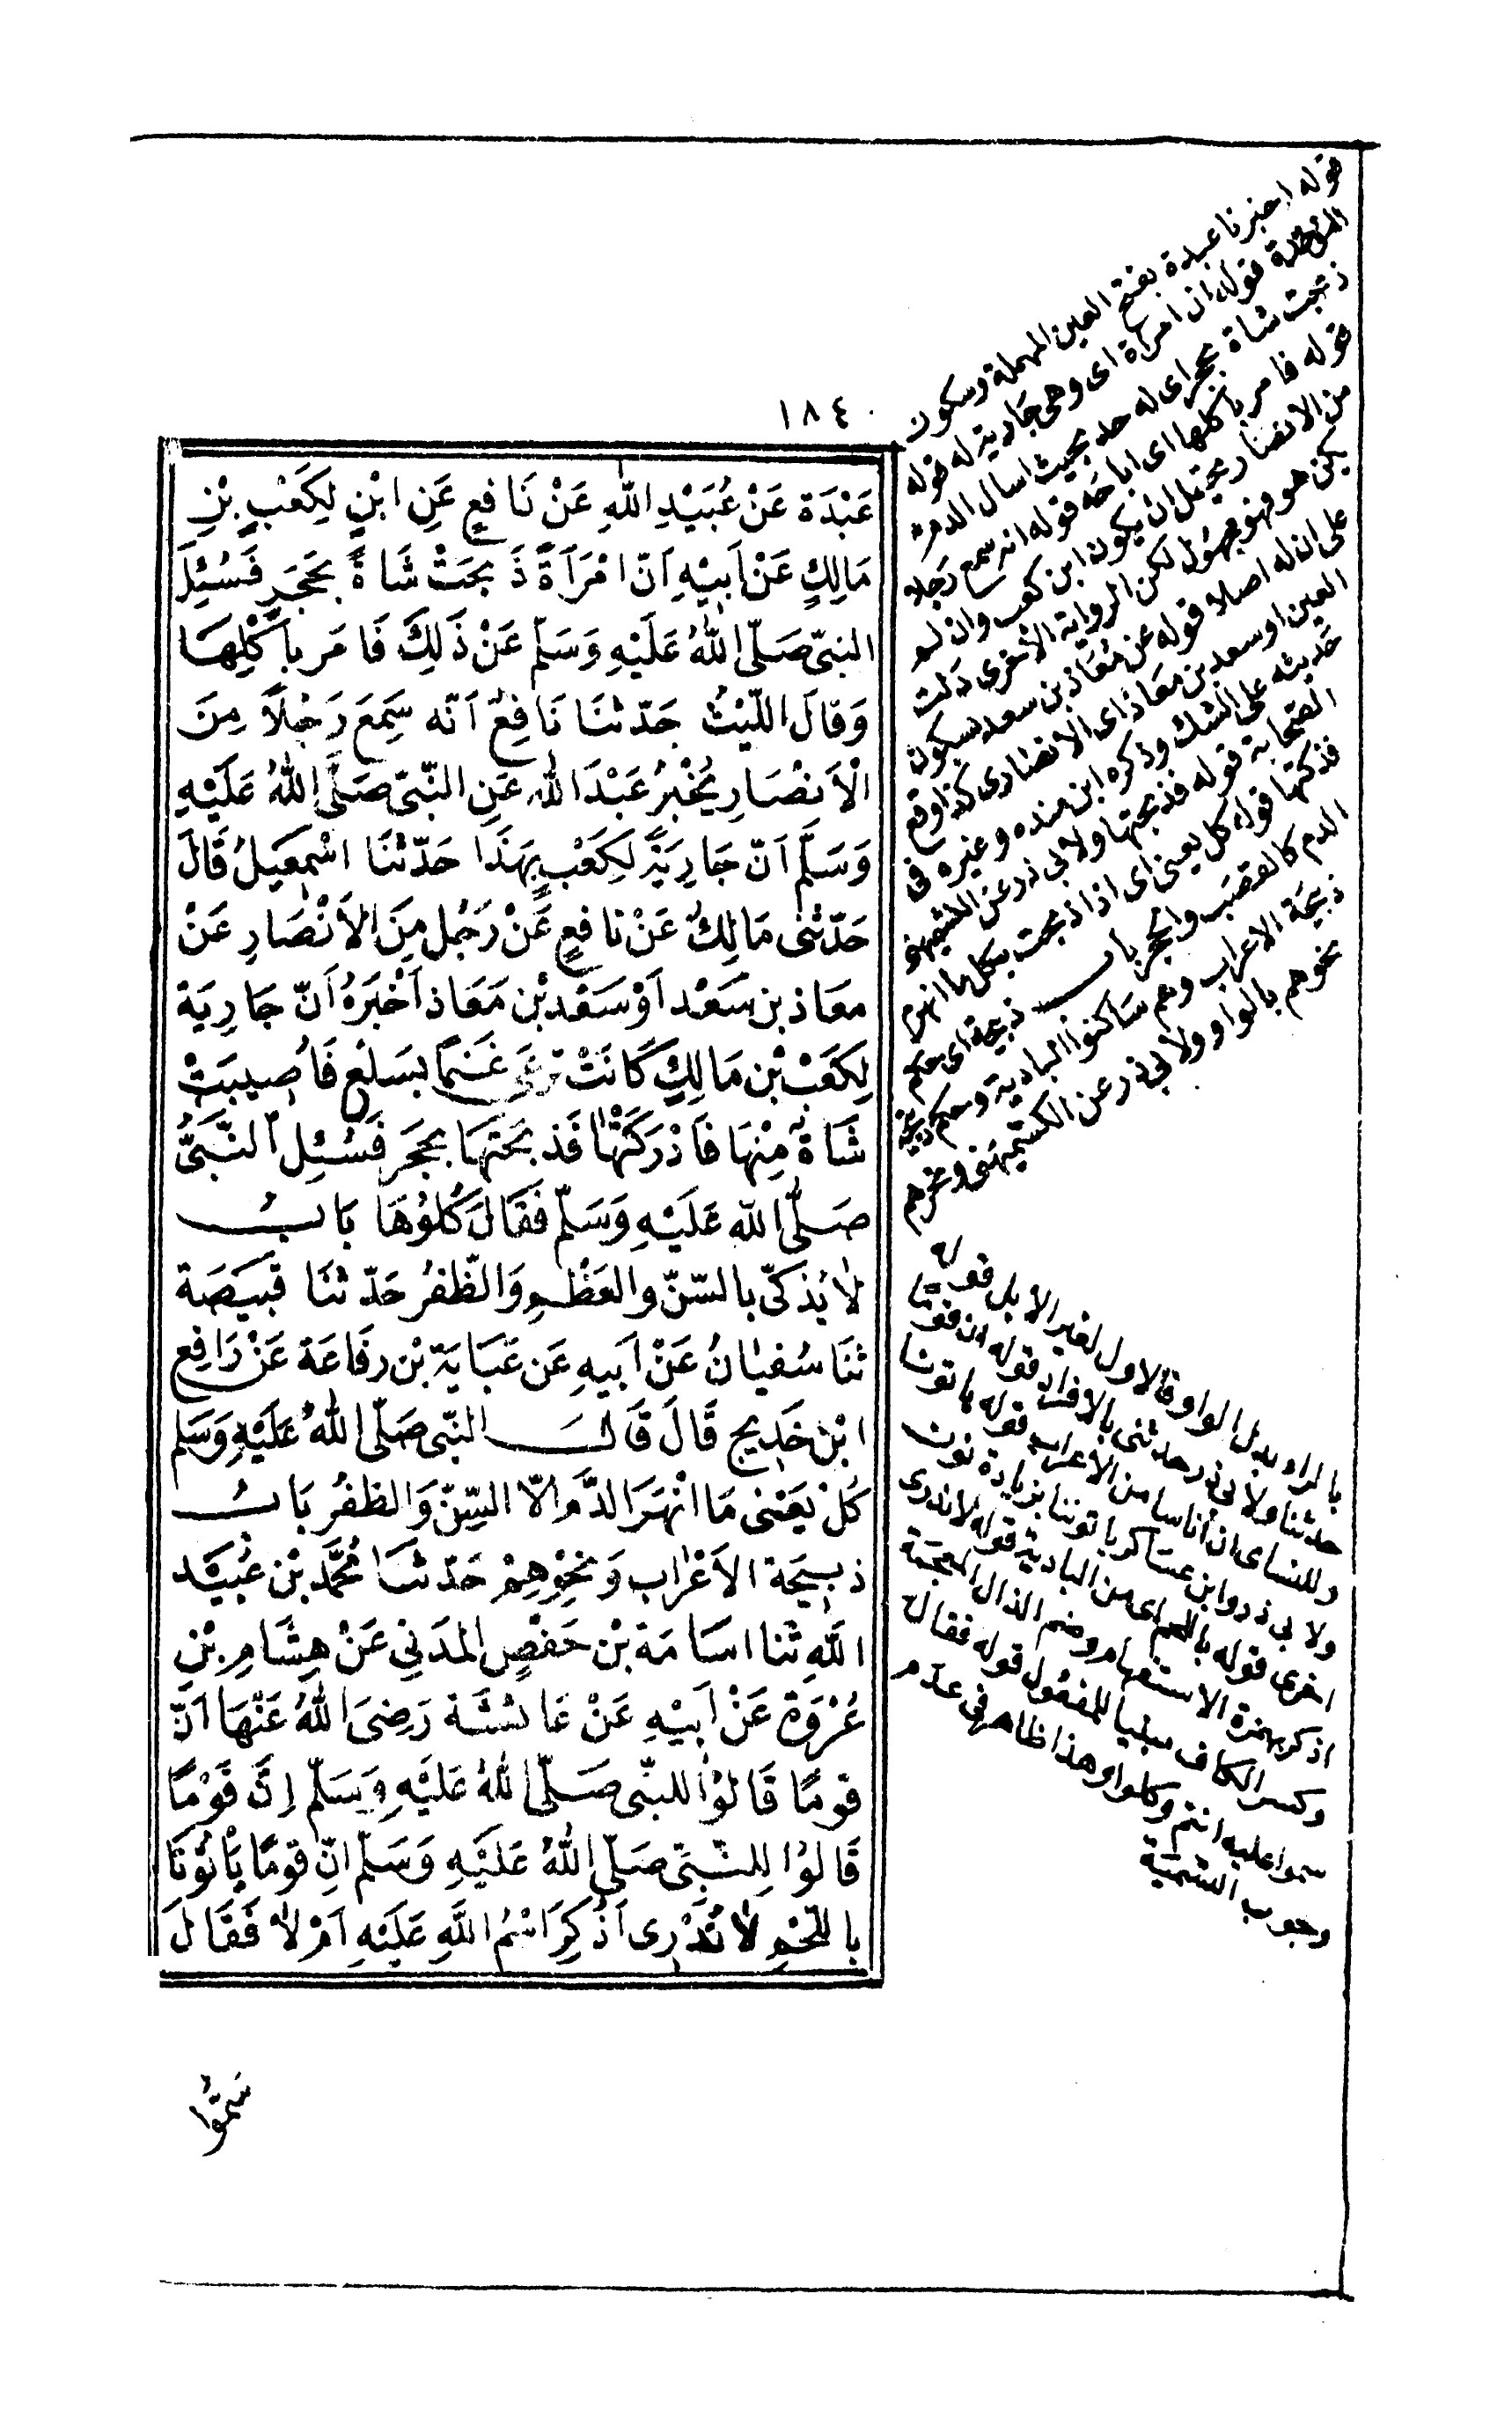 ١٨٤
عَبْدَة عَنْ عُبَيْدِ اللّٰهِ عَنْ نَافِعٍ عَنِ ابْنٍ لِكَعْبِ بْنِ
مَالِكٍ عَنْ اَبِيْهِ اَنّ امْرَأَةً ذَبحَتْ شَاةً بحَجَرٍ فَسُئِلَ
النبىّ صَلّى اللّٰهُ عَلَيْهِ وَسَلّم عَنْ ذَلِكَ فَامَر بأكْلِهَا
وَقالَ اللّيْثُ حَدّثنَا نَافِعٌ اَنّه سَمِعَ رَجُلاً مِنَ
الْاَنْصَارِ يُخْبِرُ عَبْدَ اللّٰهِ عَنِ النّبىّ صَلَّى اللّٰهُ عَلَيْهِ
وَسَلَّم اَنّ جَارِيَةً لِكَعْبٍ بِهَذَا حَدّثنَا اسْمٰعِيلُ قَالَ
حَدّثنى مَالِكٌ عَنْ نافِعٍ عَنْ رَجُلٍ مِنَ الاَنْصَارِ عَنْ
معَاذ بن سَعْد اَوْ سَعْد بْن مَعَاذ اَخْبَرَهُ اَنّ جَارِيَة
لِكَعْبْ بْن مَالِكٍ كَانَتْ تَرْعَى غَنَمًا بسَلْعٍ فَأُصِيبَتْ
شَاةٌ مِنْهَا فَادْرَكَتْهَا فَذبحَتهَا بحَجَر فَسُئِلَ النَّبىُّ
صَلّى اللّٰه عَلَيْهِ وَسَلّم فَقَالَ كُلوْهَا بَابُ
لا يُذَكّى بالسّنّ والعَظْمِ وَالظّفُرُ حَدّثنَا قَبِيصَة
ثنَا سُفيٰانُ عَنْ اَبيهِ عَن عَبَايَة بْن رفَاعَة عَنْ رَافِع
ابْن خَدِيج قَالَ قَالَ النّبى صَلّى اللّٰهُ عَلَيْهِ وَسَلم
كُلْ يَعْنى مَا انْهَرَ الدَّم الاّ السِّنّ وَالظفُرُ بَابُ
ذبيحَة الاَعْرٰاب وَنحْوِهِمْ حَدّثنَا مُحَمَّد بْن عُبَيْد
اللّٰهِ ثنا اسَامَة بْن حَفْصٍ المدَنِي عَنْ هِشَامِ بْنِ
عُرْوَةَ عَنْ اَبيْهِ عَنْ عَائشَة رَضِىَ اللّٰهُ عَنْهَا اَنّ
قومًا قَالوْا للنّبى صَلّى اللّٰهُ عَلَيْهِ وَسَلّم اِنّ قَوْمًا
قَالوُا لِلنّبِىّ صَلّى اللّٰهُ عَلَيْهِ وَسَلّم انّ قومًا يَأْتُونَا
باللّحْمِ لا نَدْرِى اَذُكِرَ اسْمُ اللّٰهِ عَلَيْهِ اَمْ لا فَقَالَ
سَمُّوا
قوله اخبرنا عبدة بفتح العين المهملة وسكون
الموحدة قوله ان امرأة اى وهى جارية له قوله
ذبحت شاة بحجر اى له حد بحيث اسال الدم
قوله فامر بأكلها اى اباحه قوله انه سمع رجلا
من الانصار يحتمل ان يكون ابن كعب وان لم
يكن هو فهو مجهول لكن الرواية الاخرى دلت
على ان له اصلا قوله عن معاذ بن سعد بسكون
العين او سعد بن معاذ اى الانصارى كذا وقع
حديثه على الشك وذكره ابن منده وغيره فى
الصحابة قوله فذبحتها ولابى ذر عن الكشميهنى
فذكتها قوله كل يعنى اى اذا ذبحت بكل ما انهر
الدم كالقصب والحجر باب ذبيحة اى حكم
ذبيحة الاعراب وهم ساكنوا البادية وحكم ذبيحة
نحوهم بالواو ولابى ذر عن الكشميهنى ونحرهم
بالراء بدل الواو فالاول لغير الابل قوله
حدثنا ولابى ذر حدثنى بالافراد قوله ان قوما
وللنساى ان أناسا من الاعراب قوله ياتونا
ولابى ذر وابن عساكر ياتوننا بزيادة نون
اخرى قوله باللحم اى من البادية قوله لا ندرى
اذكر بهمزة الاستفهام وضم الذال المعجمة
وكسر الكاف مبنيا للمفعول قوله فقال
سموا عليه انتم وكلوا وهذا ظاهر فى عدم
وجوب التسمية